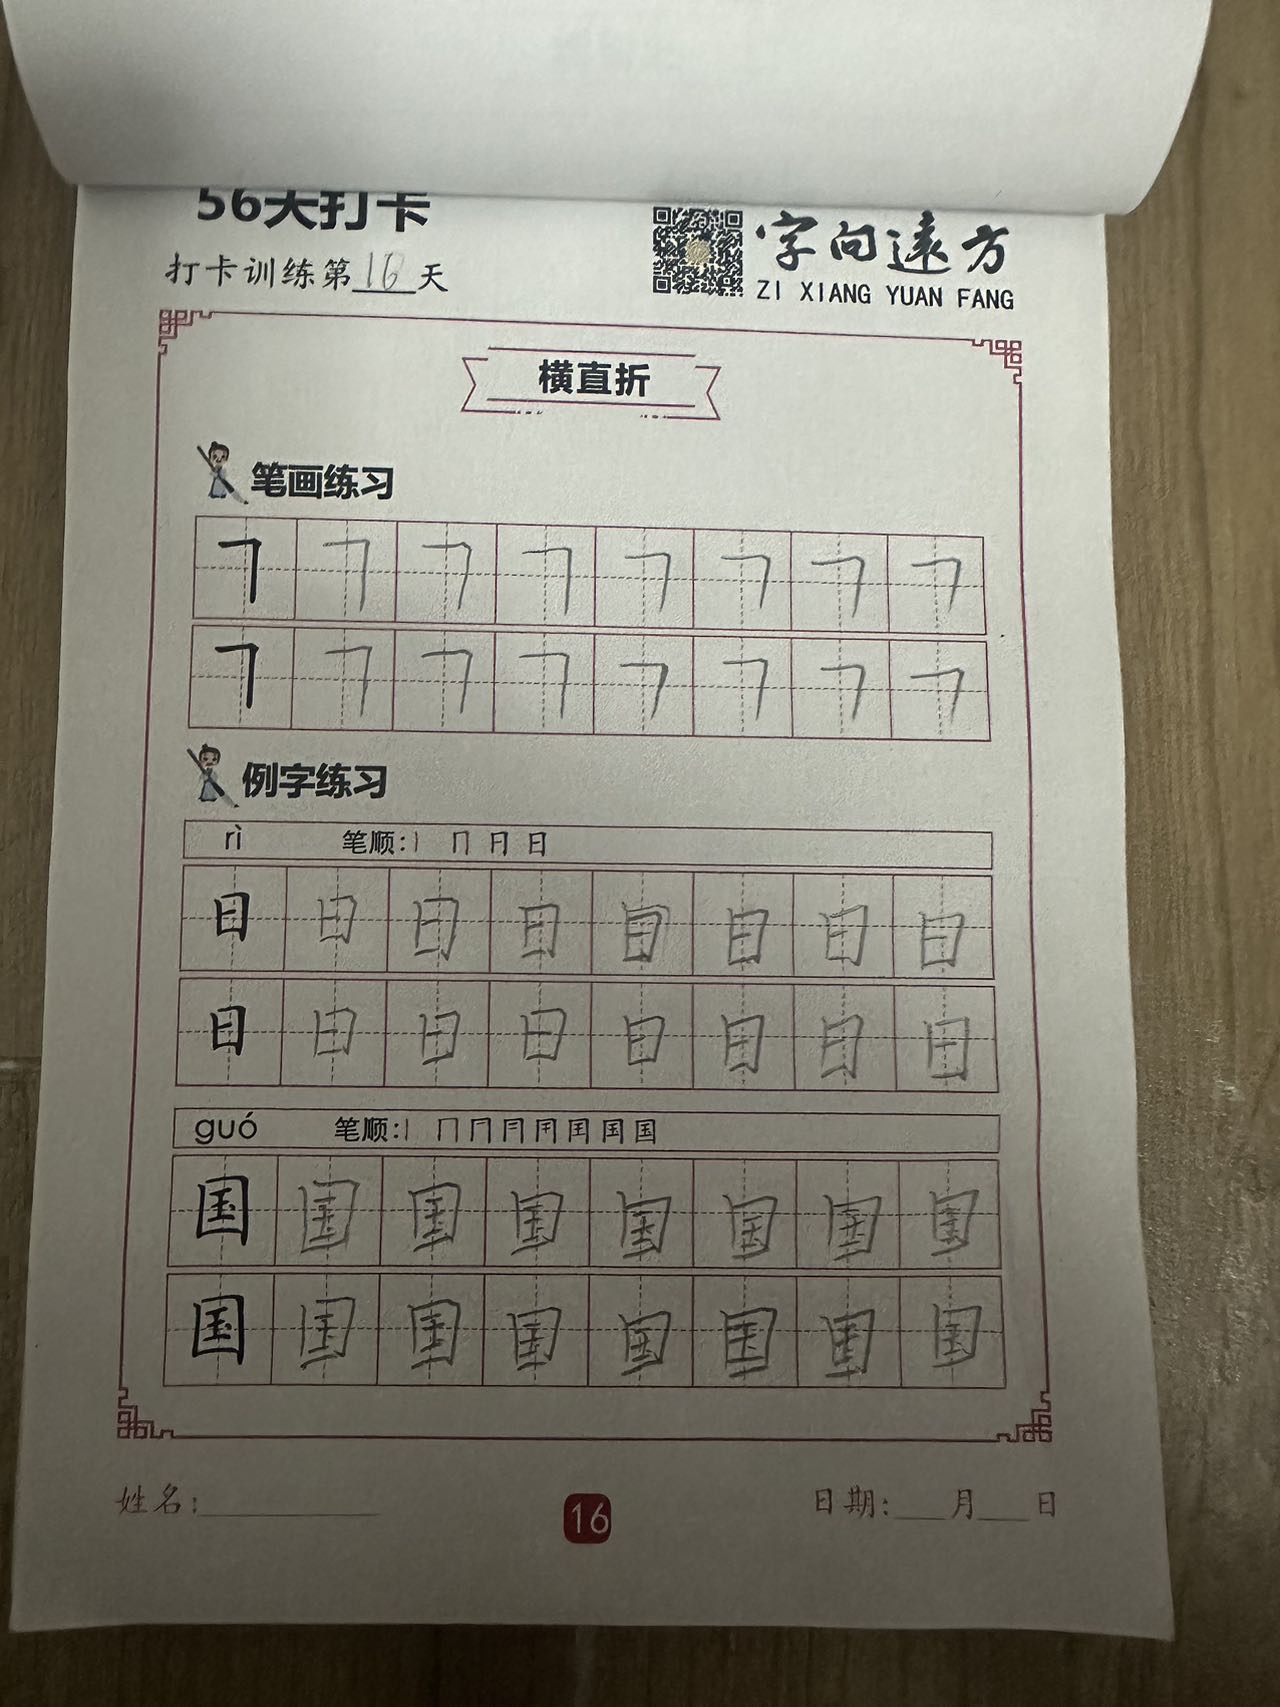 56天打卡
打卡训练第16天
字向遠方
ZI XIANG YUAN FANG
横直折
笔画练习
㇕ ㇕ ㇕ ㇕ ㇕ ㇕ ㇕ ㇕
㇕ ㇕ ㇕ ㇕ ㇕ ㇕ ㇕ ㇕
例字练习
rì 笔顺:丨 冂 日 日
日 日 日 日 日 日 日 日
日 日 日 日 日 日 日 日
guó 笔顺:丨 冂 冂 国
国 国 国 国 国 国 国 国
国 国 国 国 国 国 国 国
姓名:
16
日期: 月 日